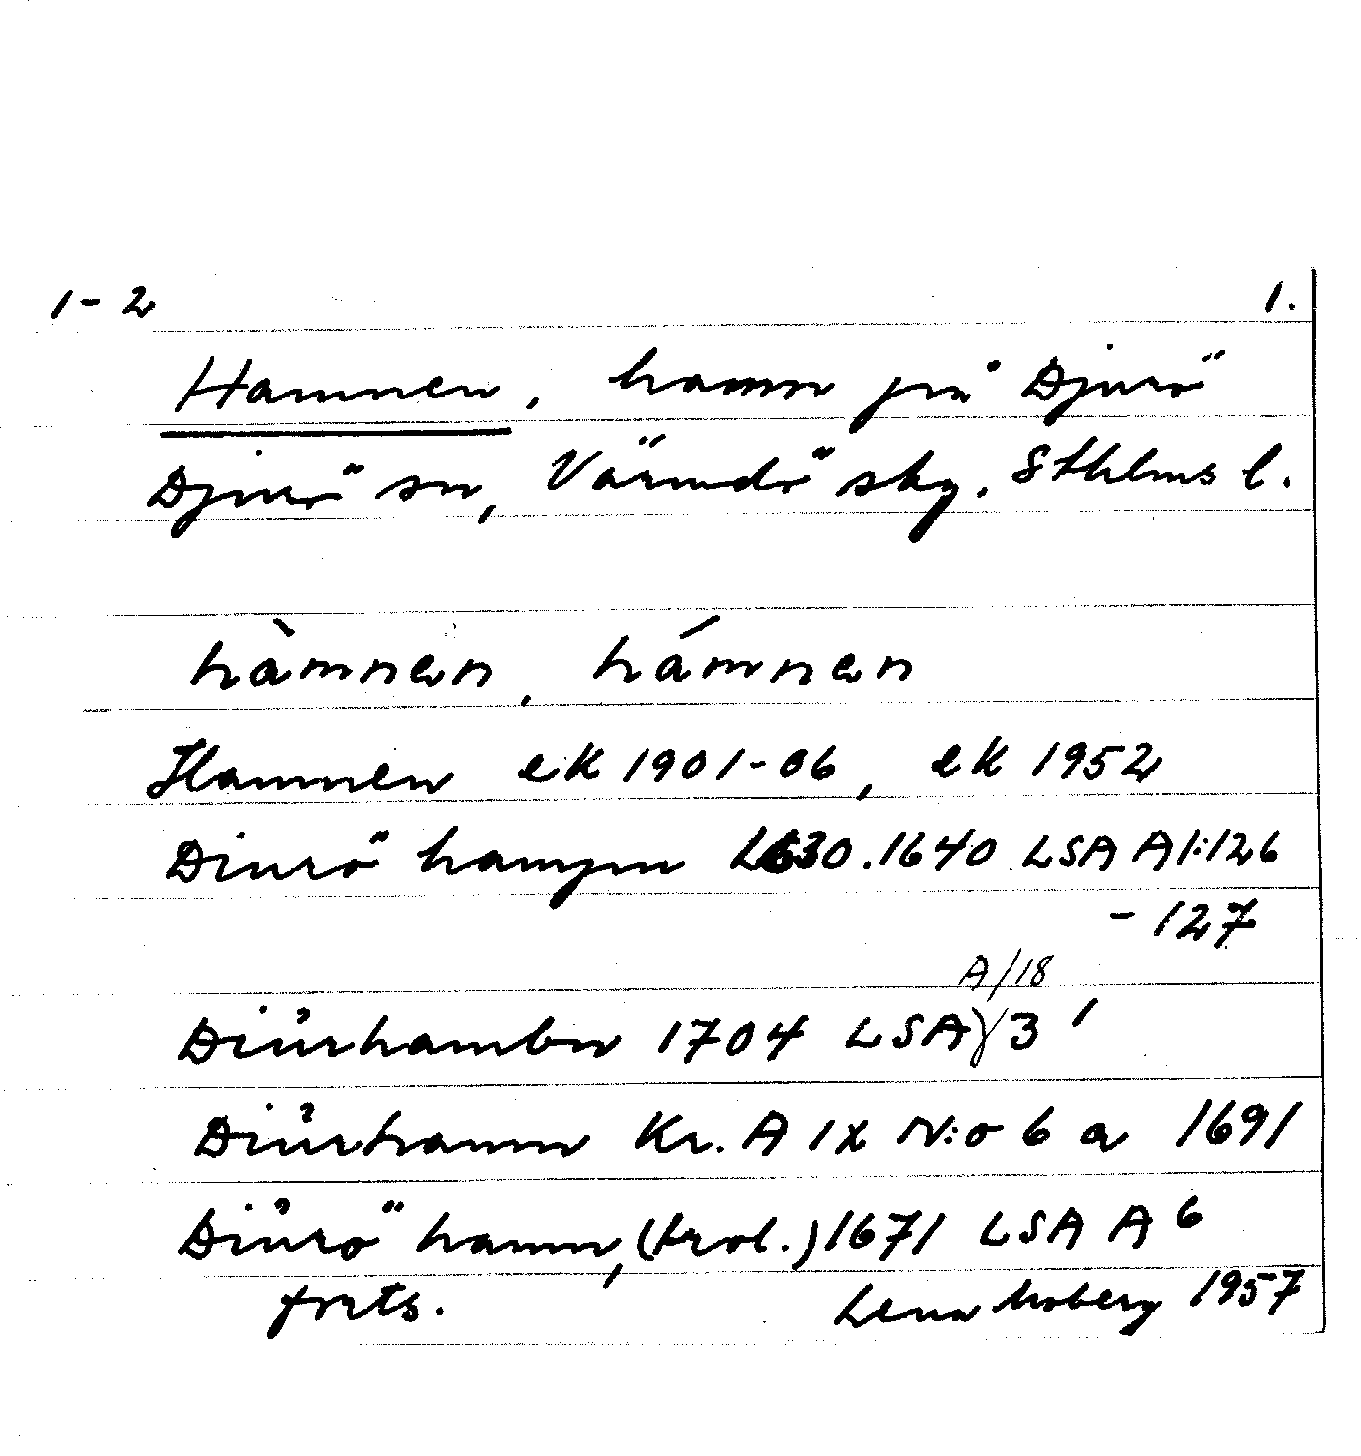 1-2 1.
Hamnen, hamn på Djurö
Djurö sn, Värmdö skg. Sthlms l.
hàmnen, hámnen
Hamnen ek 1901-06, ek 1952
Diurö hampn 1630.1640 LSA A1:126
-127
A/18
Diůrhambn 1704 LSA 3 1
Diůrhamn Kr. A IX N:o 6 a 1691
Diůrö hamn, (trol.) 1671 LSA A 6
forts. Lena Moberg 1957